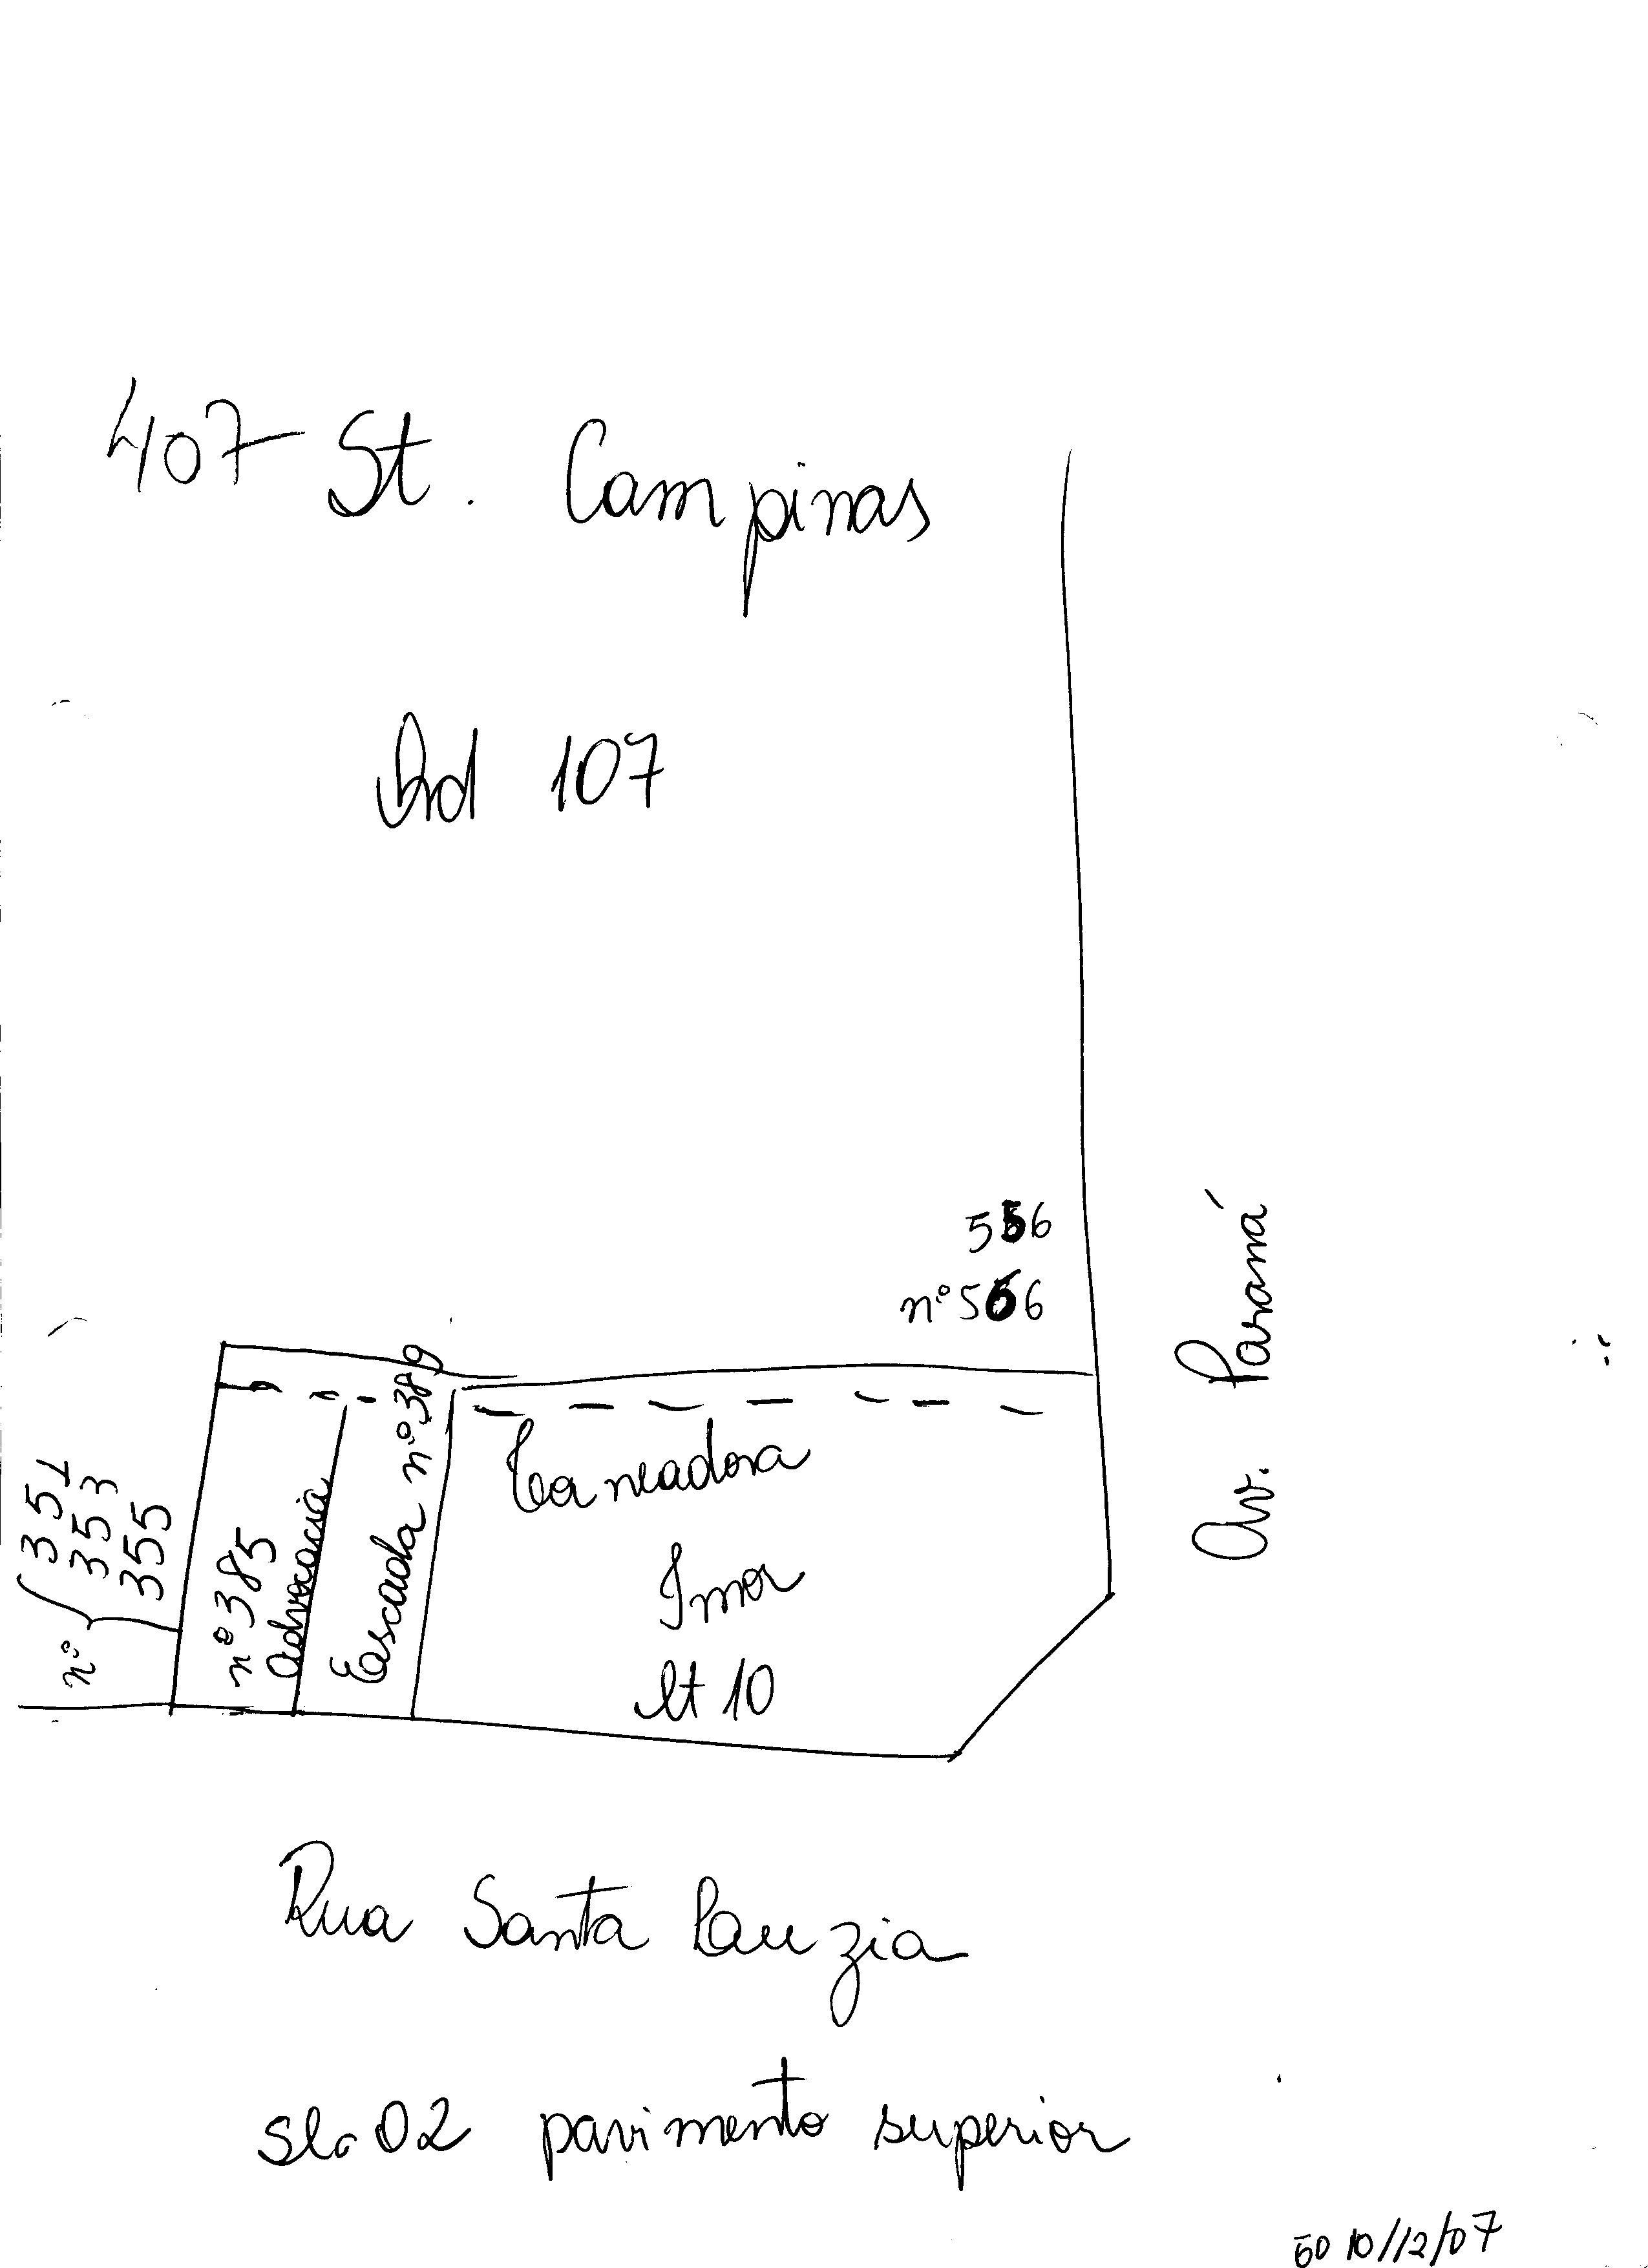 407 St. Campinas
Qd 107
556
nº 566
Av. Paraná
nº 351
353
355
nº 385
Advocacia
Escada nº 389
lt 10
Rua Santa Luzia
sla 02 pavimento superior
10/12/07